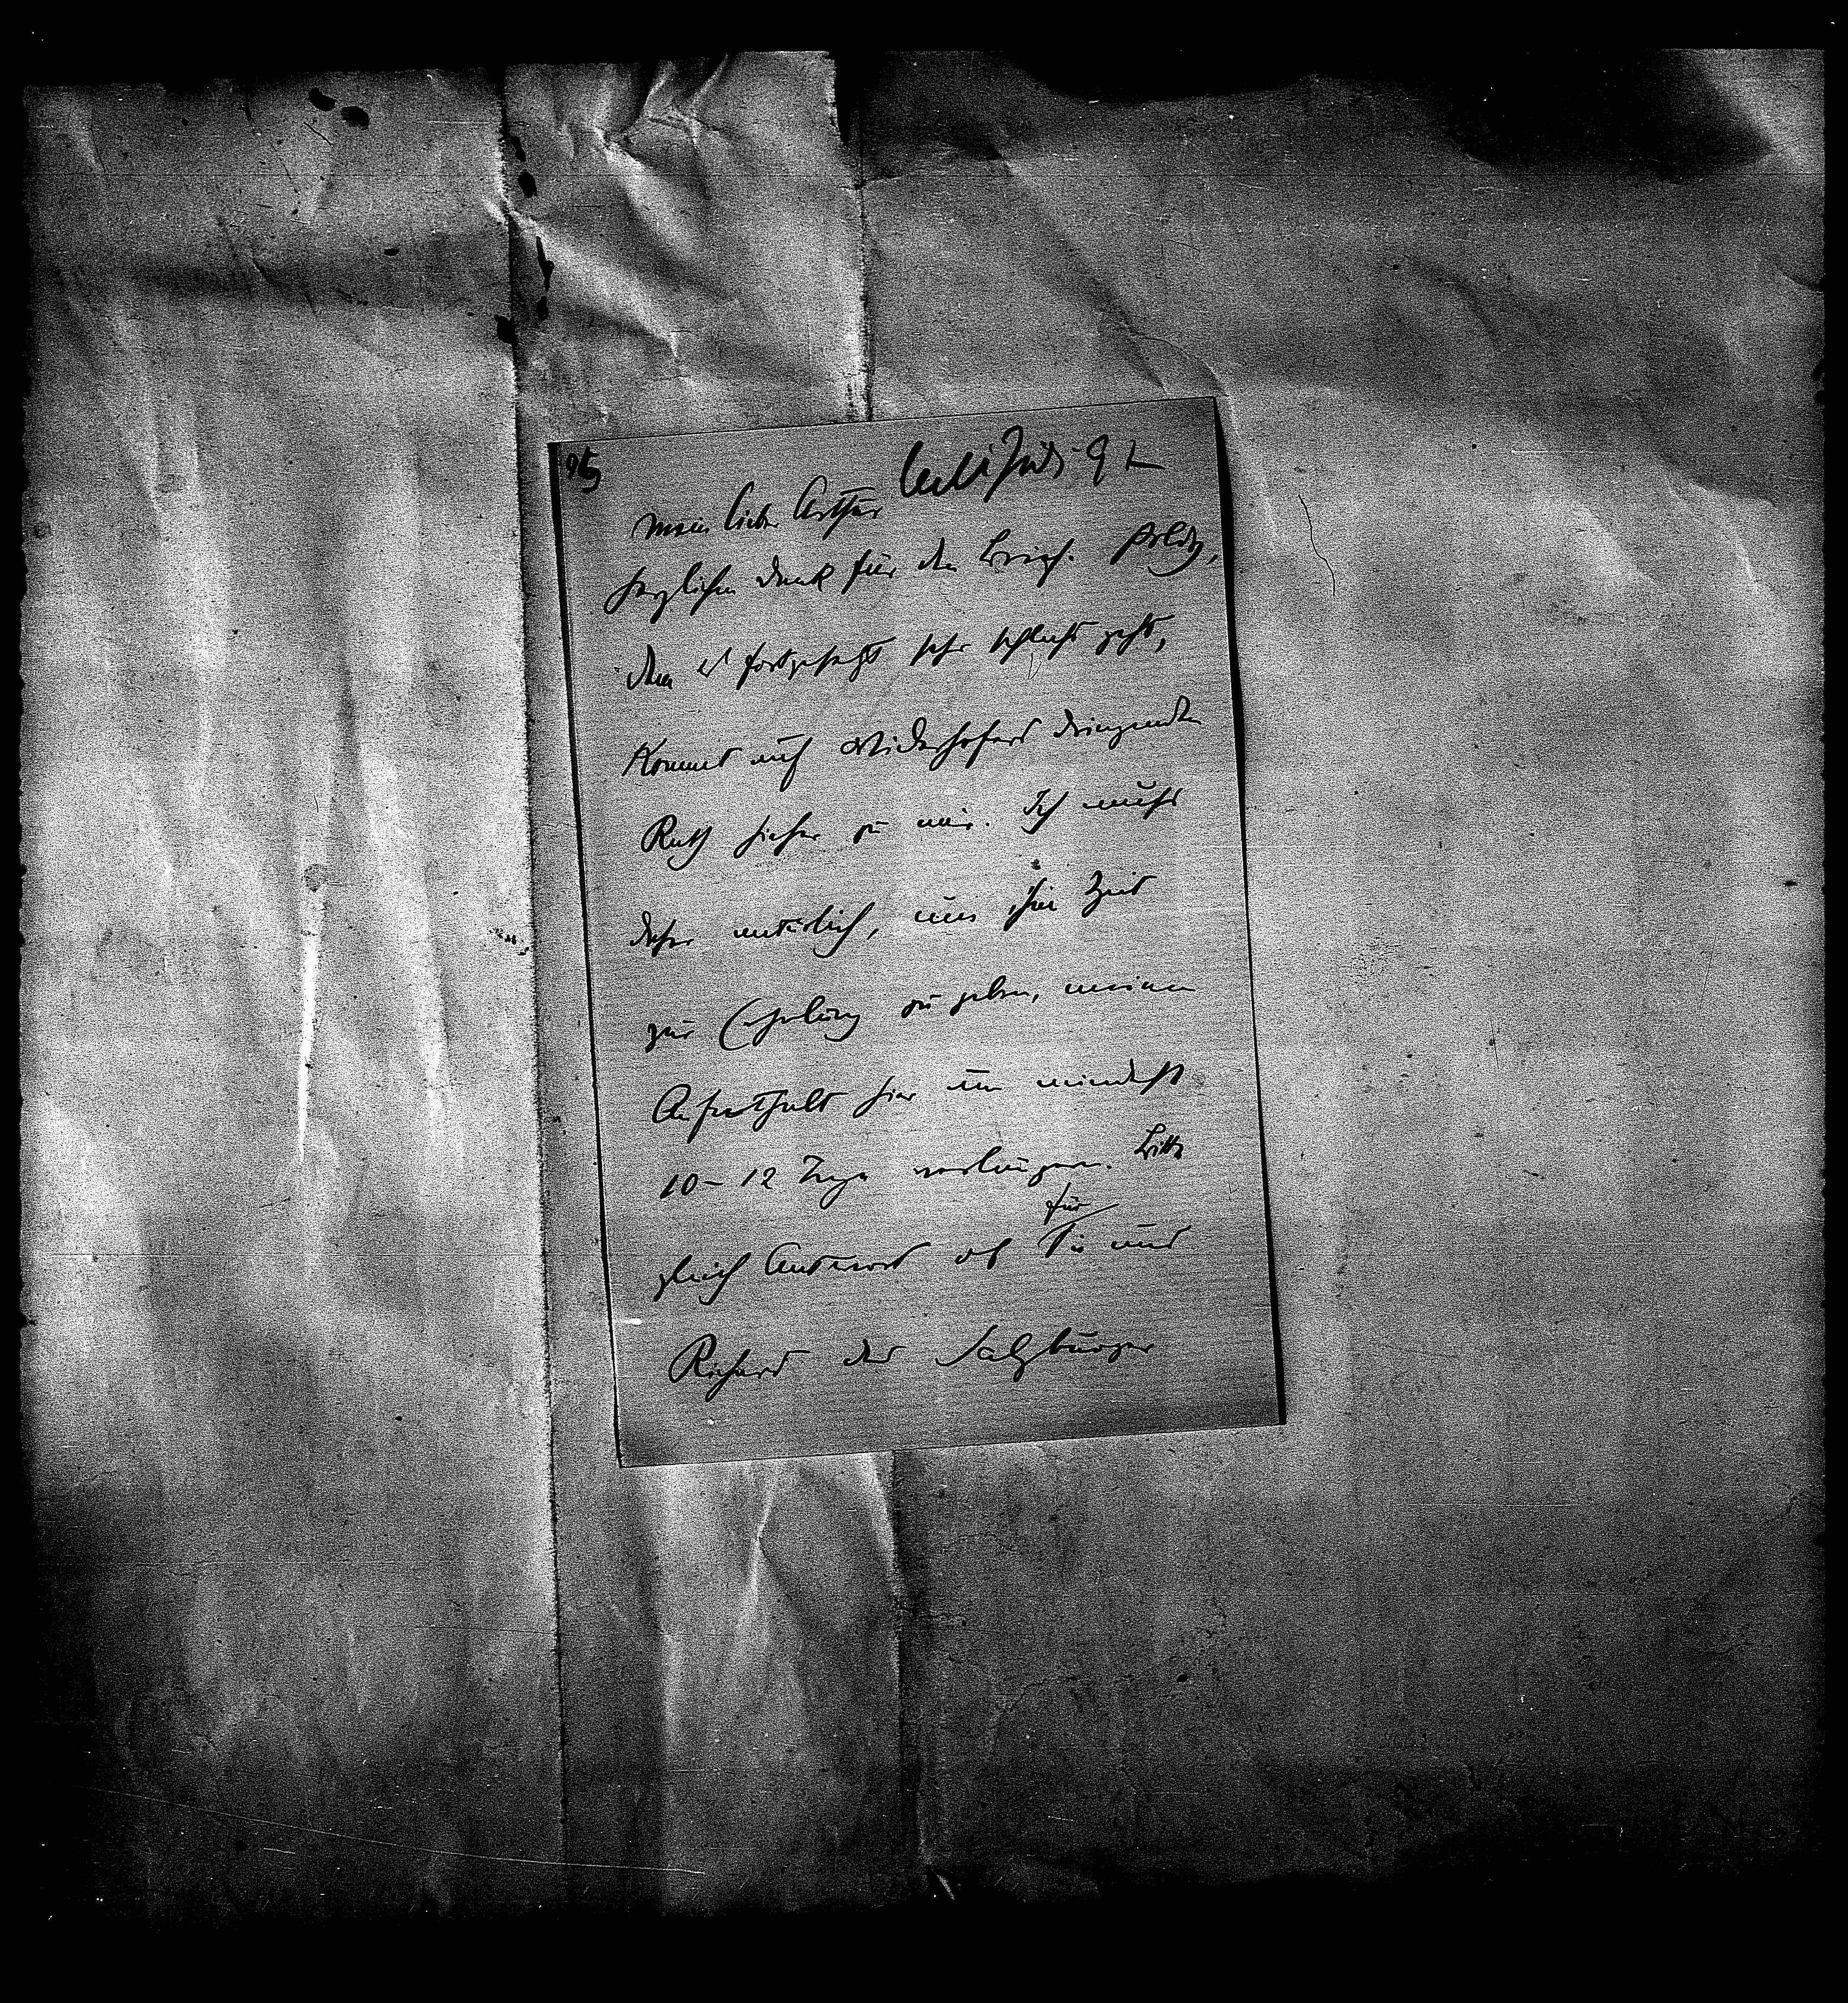 95
Mein lieber Arthur
herzlichen Dank für den Brief. Poldy,
dem es fortgesetzt sehr schlecht geht,
kommt auf Widerhofers dringenden
Rath hieher zu mir. Ich muß
daher natürlich, um ihm Zeit
zur Erholung zu geben, meinen
Aufenthalt hier um mindest
10–12 Tage verlängern. Bitte
gleich Antwort ob für Sie und
Richard der Salzburger